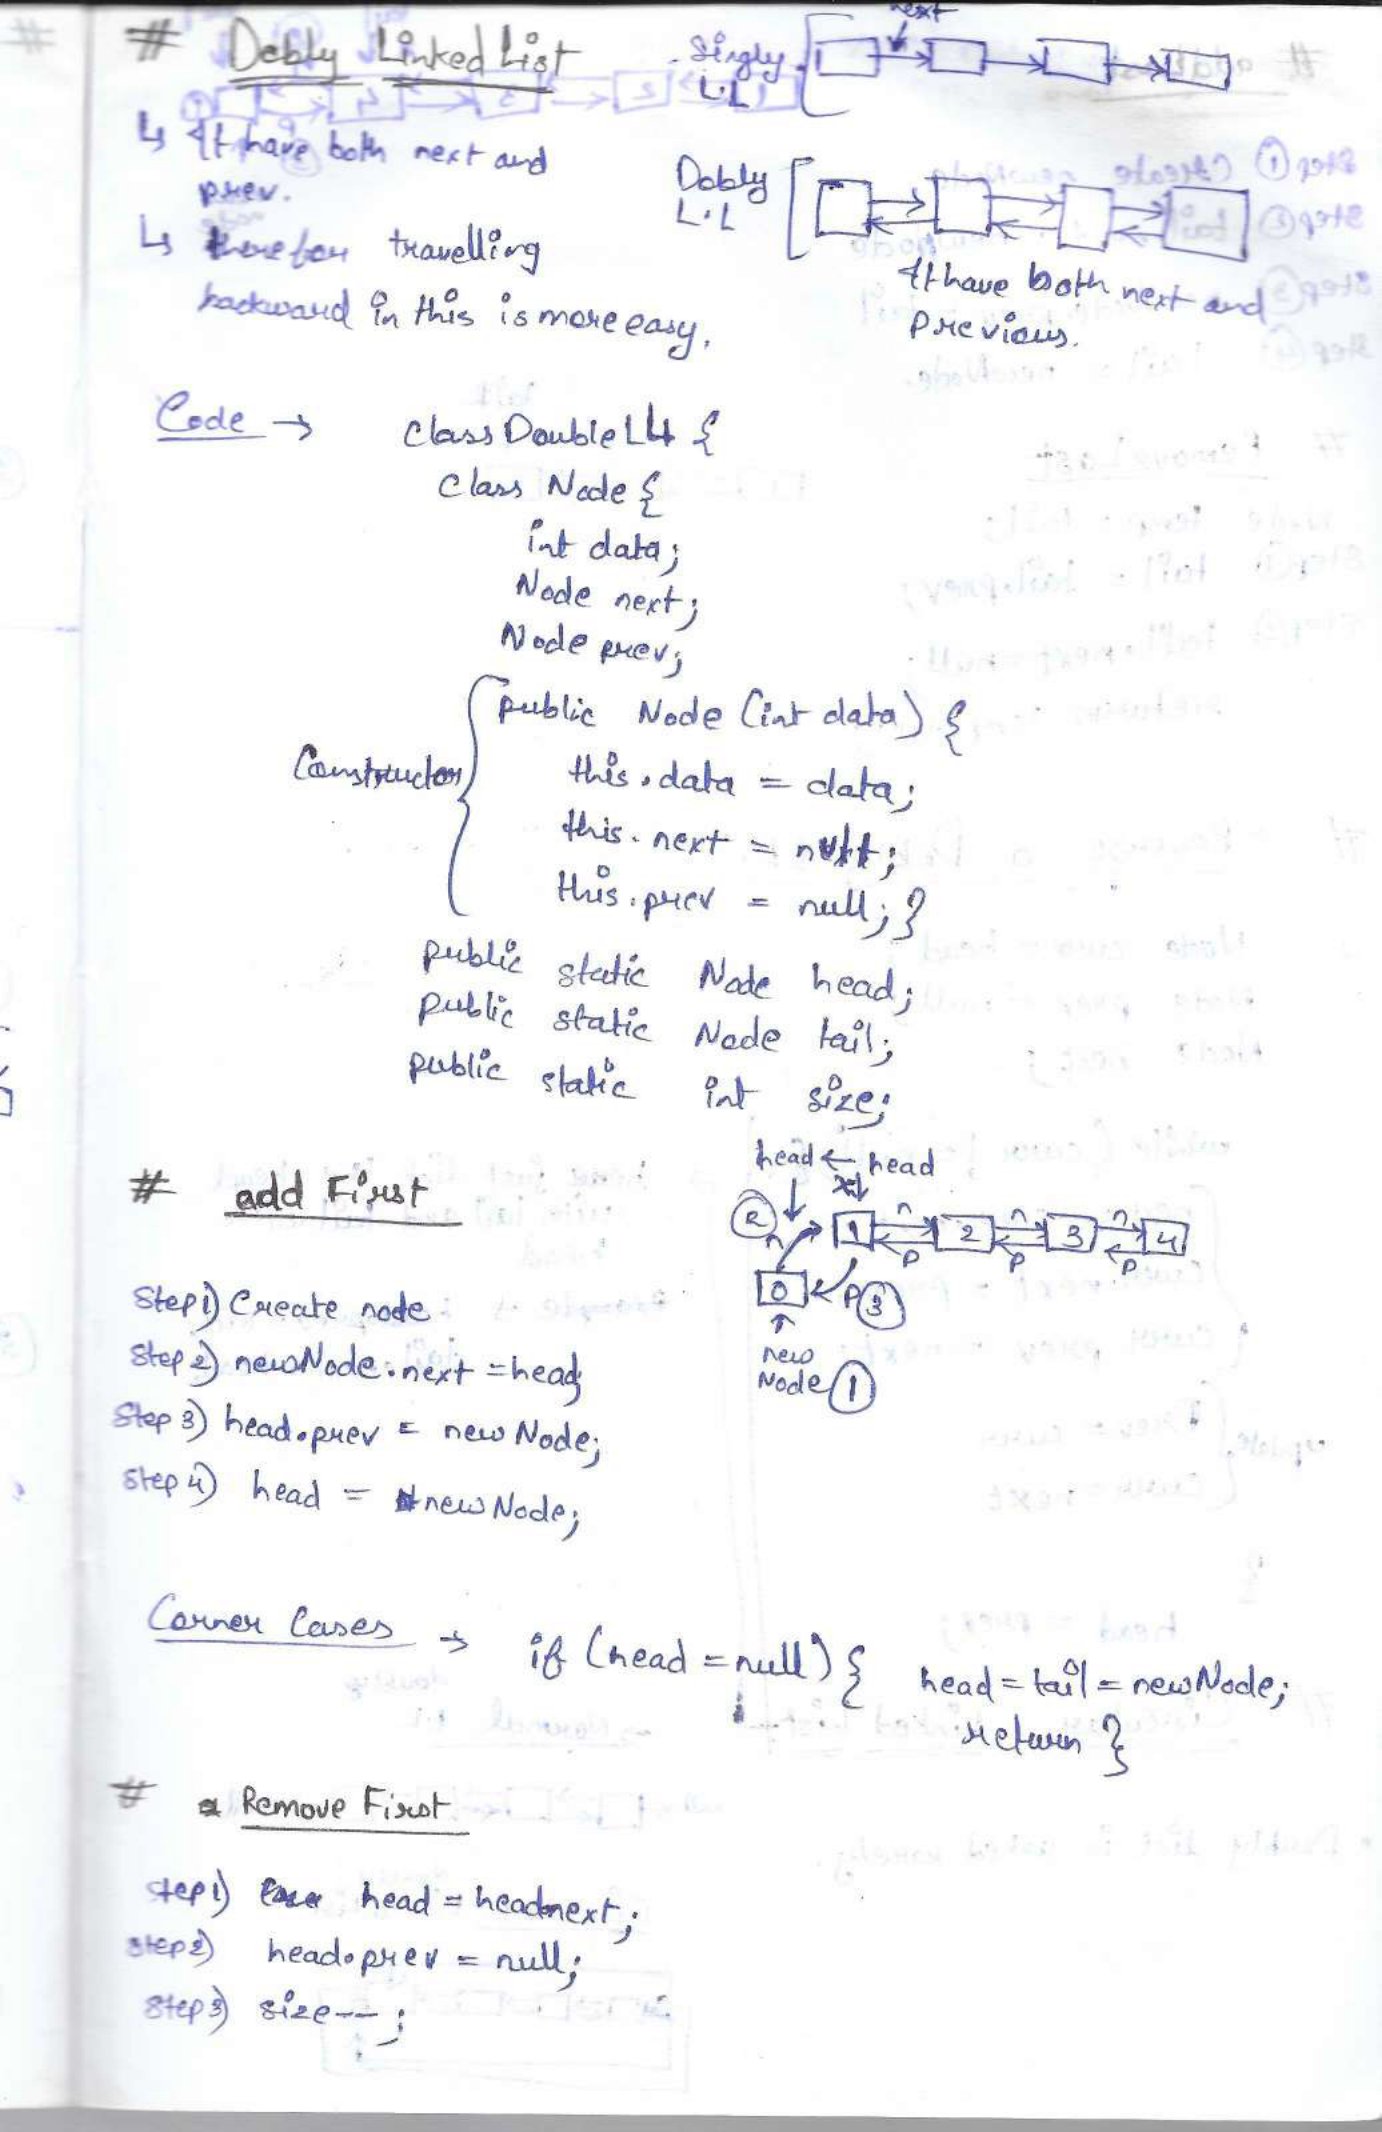 # Dobly Linked List
↳ It have both next and
prev.
↳ therefor travelling
backward in this is more easy.
Singly
L.L
next
Dobly
L.L
It have both next and
previous.
Code →
class Double LL {
class Node {
int data;
Node next;
Node prev;
Constructor
public Node (int data) {
this.data = data;
this.next = null;
this.prev = null; }
public static Node head;
public static Node tail;
public static int size;
# add First
Step 1) Create node
Step 2) newNode.next = head;
Step 3) head.prev = newNode;
Step 4) head = newNode;
head ← head
x
2 n 1 n 2 n 3 n 4
p p p
0 p 3
new
Node 1
Corner Cases → if (head = null) { head = tail = newNode;
return }
# Remove First
Step 1) head = head.next;
Step 2) head.prev = null;
Step 3) size-- ;